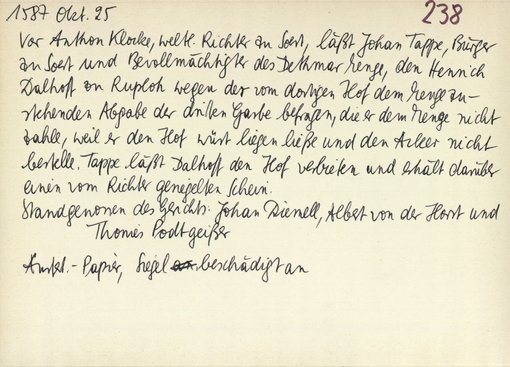 1587 Okt. 25 238
Vor Anthon Klocke, weltl. Richter zu Soest, läßt Johan Tappe, Bürger
zu Soest und Bevollmächtigter des Dethmar Menge, den Hennrich
Dalhoff zu Ruploh wegen der vom dortigen Hof dem Menge zu-
stehenden Abgabe der dritten Garbe befragen, die er dem Menge nicht
zahle, weil er den Hof wüst liegen ließe und den Acker nicht
bestelle. Tappe läßt Dalhoff den Hof verbieten und erhält darüber
einen vom Richter gesiegelten Schein.
Standgenossen des Gerichts: Johan Dienell, Albert von der Horst und
Thomis Podtgeißer
Ausf. - Papier, Siegel beschädigt an